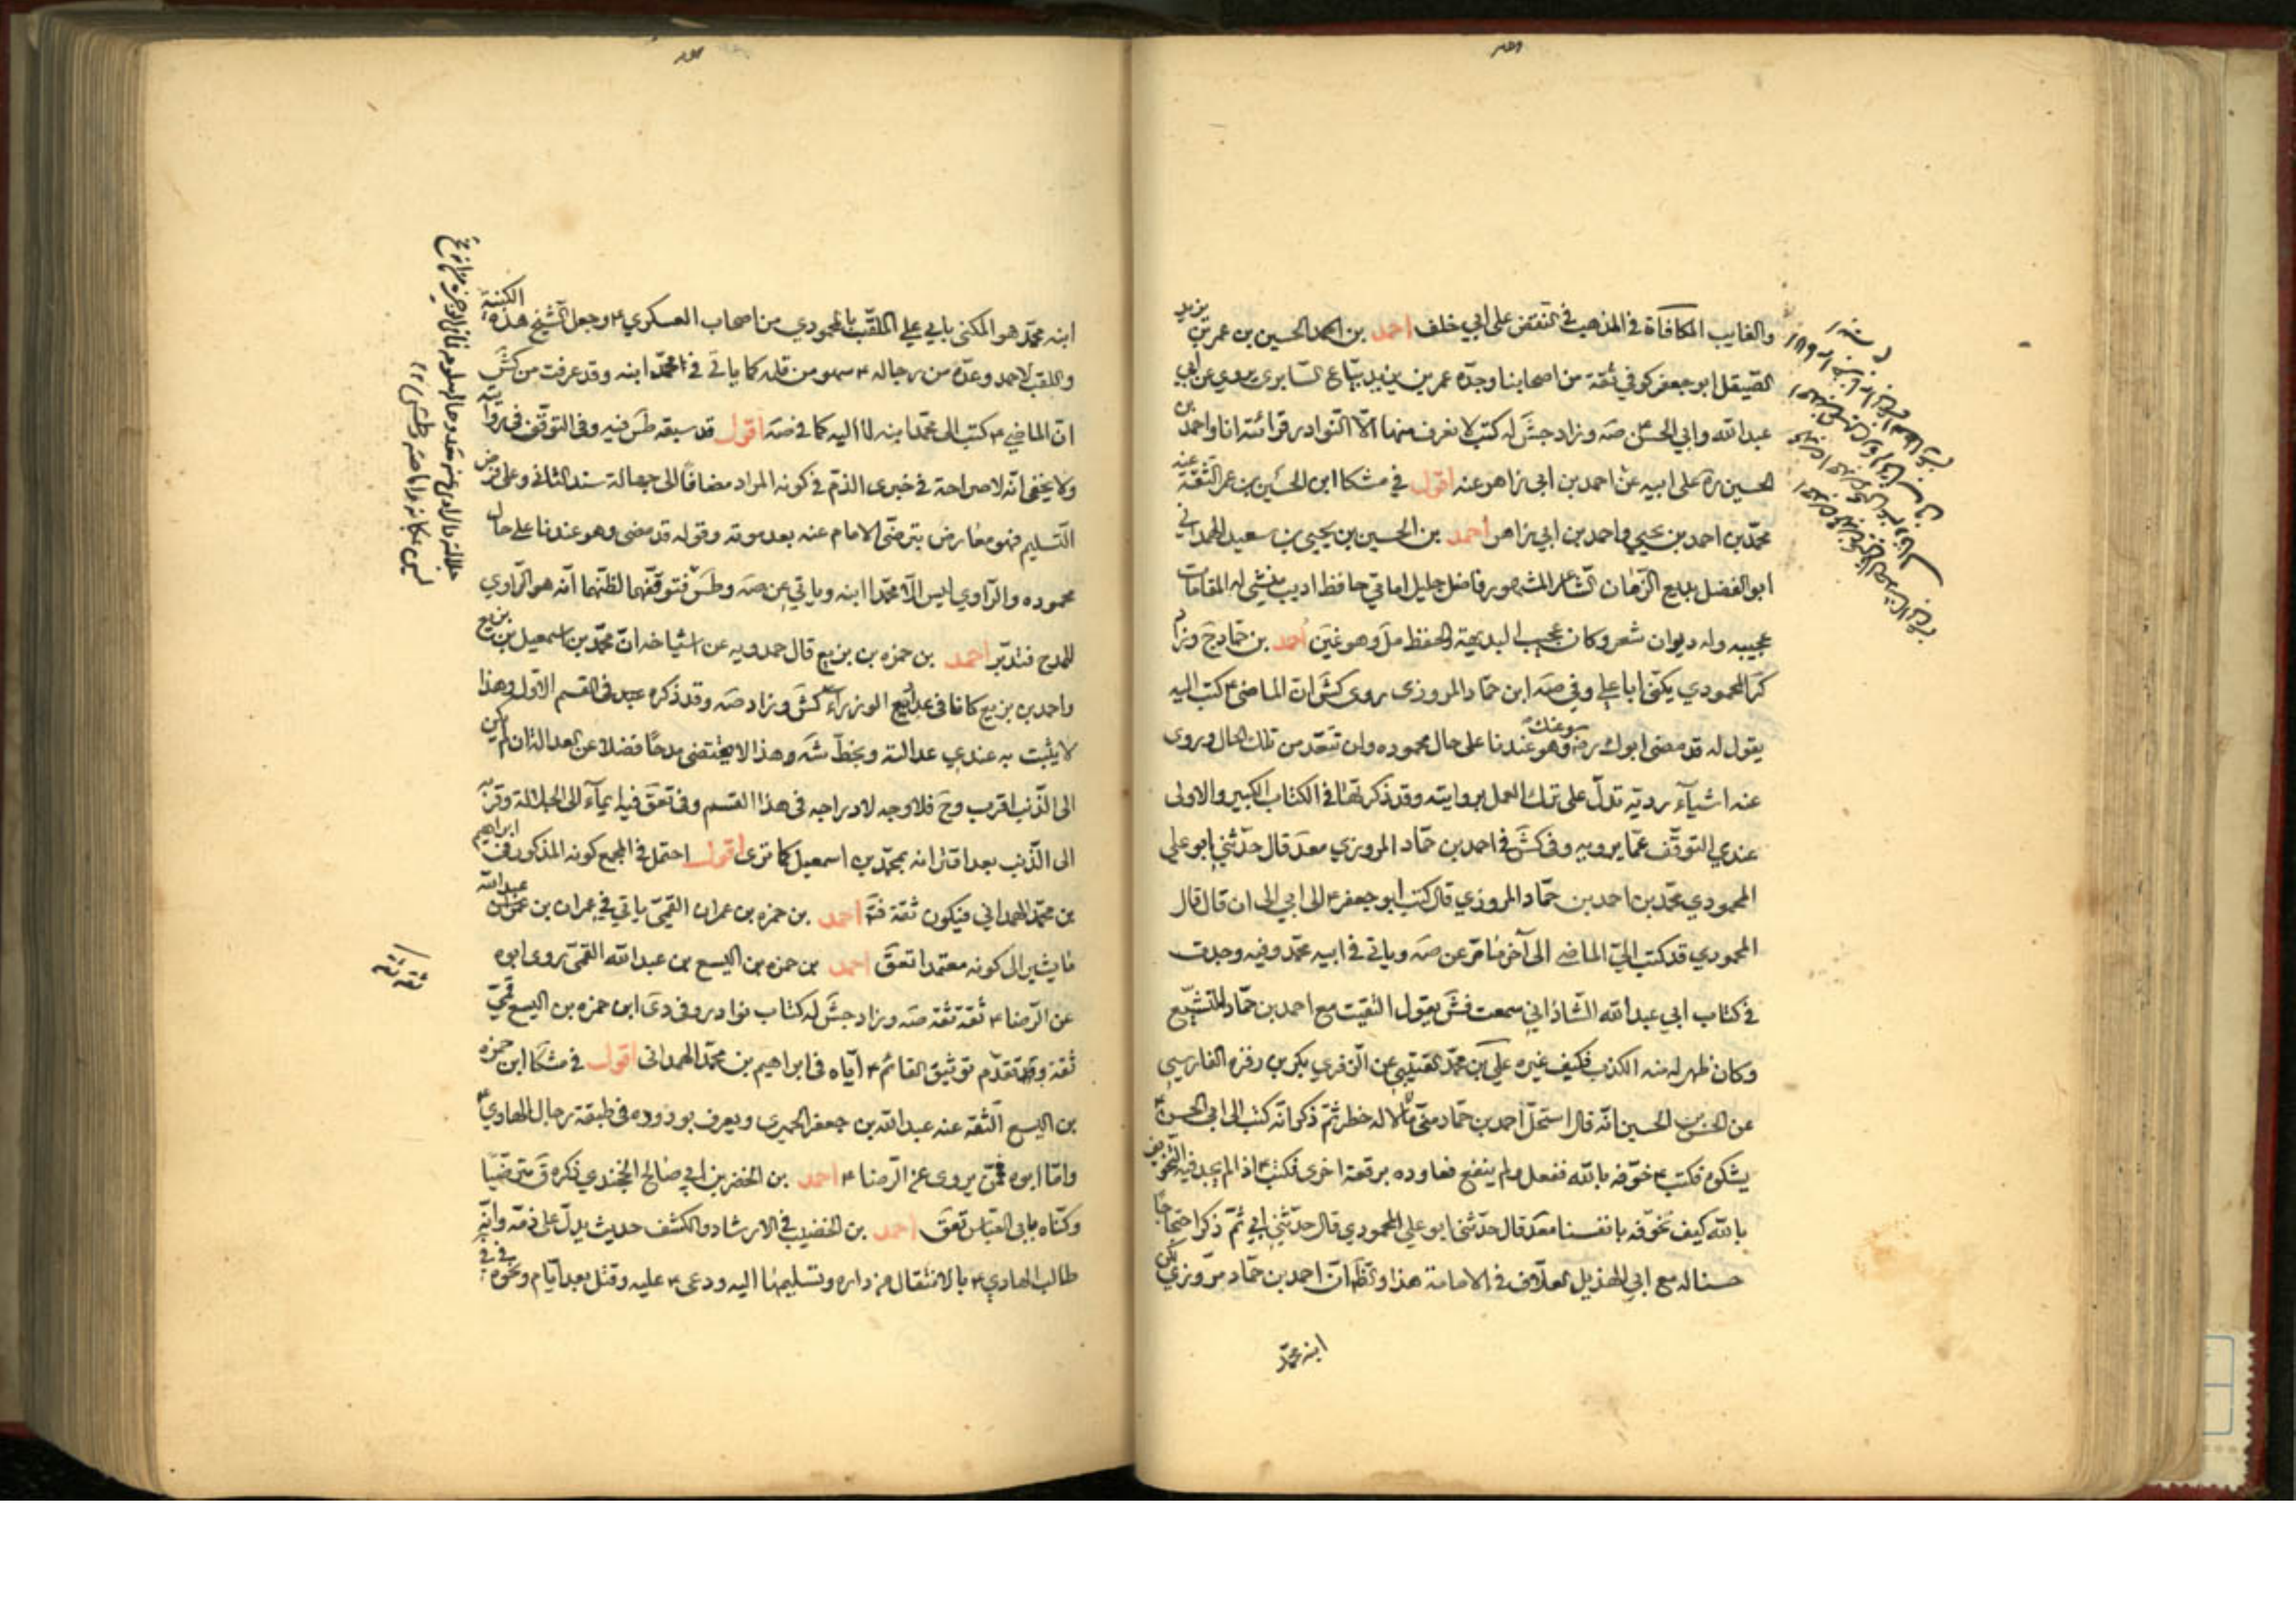 والغايب المكافاة في المذهب في النقض على ابي خلف احمد بن الحسين بن عمر بن يزيد
الصيقل ابو جعفر كوفي ثقة من اصحابنا وجدّه عمر بن يزيد بيّاع السابري روى عن ابي
عبد الله وابي الحسن صه وزاد جش له كتب لا نعرف منها الّا النوادر قرائته انا واحمد بن
الحسين ره على ابيه عن احمد بن ابي زاهر عنه اقول في مشكا ابن الحسين بن عمر الثقة عنه
محمّد بن احمد بن يحيى واحمد بن ابي زاهر احمد بن الحسين بن يحيى بن سعيد الهمداني
ابو الفضل بديع الزمان الشاعر المشهور فاضل جليل امامي حافظ اديب منشي له المقامات
عجيبه وله ديوان شعر وكان عجيب البديهة والحفظ مل وهو غين احمد بن حمّاد دج وزاد
كر المحمودي يكنى ابا علي وفي صه ابن حمّاد المروزي روى كش ان الماضي ٤ كتب اليه
يقول له قد مضى ابوك رضه وعنك وهو عندنا على حال محموده ولن تبعد من تلك الحال وروى
عنه اشيآء رديّه تدلّ على ترك العمل بروايته وقد ذكرتها في الكتاب الكبير والاولى
عندي التوقّف عمّا يرويه وفي كش في احمد بن حمّاد المروزي معد قال حدّثني ابو علي
المحمودي محمّد بن احمد بن حمّاد المروزي قال كتب ابو جعفر ٤ الى ابي الى ان قال قال
المحمودي قد كتب اليّ الماضي الى آخر ما مرّ عن صه وياتي في ابيه محمّد وفيه وجدت
في كتاب ابي عبد الله الشاذاني سمعت فش يقول التقيت مع احمد بن حمّاد المتشيّع
وكان ظهر له منه الكذب فكيف غيره علي بن محمّد القتيبي عن الزفري بكر بن زفره الفارسي
عن الحسن بن الحسين انّه قال استحلّ احمد بن حمّاد منّي مالا له خطر ثمّ ذكر انّه كتب الى ابي الحسن ٤
يشكوه فكتب ٤ خوّفه بالله ففعل ولم ينفع فعاوده برقعة اخرى فكتب ٤ اذا لم يجد فيه التخويف
بالله كيف تخوّفه بانفسنا معد قال حدّثني ابو علي المحمودي قال حدّثني ابي ثمّ ذكر احتجاجا
حسنا له مع ابي الهذيل العلّاف في الامامة هذا والظّ انّ احمد بن حمّاد مروزي لكن
ابنه محمّد
ابنه محمّد هو المكنى بابي علي الملقّب بالمحمودي من اصحاب العسكري ٤ وجعل الشيخ هذه الكنية
واللقب لاحمد وعدّه من رجاله ٤ سهو من قلمه كما ياتي في محمّد ابنه وقد عرفت من كش
انّ الماضي ٤ كتب الى محمّد ابنه لا اليه كما في صه اقول قد سبقه طس فيه وفي التوقّف في روايته
ولا يخفى انّه لا صراحة في خبري الذمّ في كونه المراد مضافا الى جهالة سند الثاني وعلى فرض
التسليم فهو معارض بترضّي الامام عنه بعد موته وقوله قد مضى وهو عندنا على حال
محموده والراوي ليس الّا محمّدا ابنه وياتي عن صه وطس فتوقّفهما لظنّهما انّه هو الراوي
للمدح فتدبّر احمد بن حمزه بن بزيع قال حمدويه عن اشياخه انّ محمّد بن اسمعيل بن بزيع
واحمد بن بزيع كانا في عداد الوزراء كش وزاد صه وقد ذكره عبد في القسم الاوّل وهذا
لا يثبت به عندي عدالته وبخطّ شه وهذا لا يقتضي مدحا فضلا عن العدالة ان لم يكن
الى الذّنب اقرب وح فلا وجه لادراجه في هذا القسم وفي تعق فيه ايمآء الى الجلالة وقربه
الى الذّنب بعد اقترانه بمحمّد بن اسمعيل كما ترى اقول احتمل في المجمع كونه المذكور في ابراهيم
بن محمّد الهمداني فيكون ثقة فتا احمد بن حمزه بن عمران القمّي ياتي في عمران بن عبد الله
ما يشير الى كونه معتمدا تعق احمد بن حمزه بن اليسع بن عبد الله القمّي روى ابوه
عن الرّضا ٤ ثقة ثقة صه وزاد جش له كتاب نوادر وفي دي ابن حمزه بن اليسع قمّي
ثقة وقد تقدّم توثيق القائم ٤ ايّاه في ابراهيم بن محمّد الهمداني اقول في مشكا ابن حمزه
بن اليسع الثقة عنه عبد الله بن جعفر الحميري ويعرف بوروده في طبقة رجال الهادي ٤
وامّا ابوه يروي عن الرّضا ٤ احمد بن الخضر بن ابي صالح الخجندي ذكره ق مترضّيا
وكنّاه بابي العبّاس تعق احمد بن الخضيب في الارشاد والكشف حديث يدلّ على ذمّه وانّه
طالب الهادي ٤ بالانتقال من داره وتسليمها اليه ودعى ٤ عليه وقتل بعد ايّام ونحوه في في
ثقة ثقة